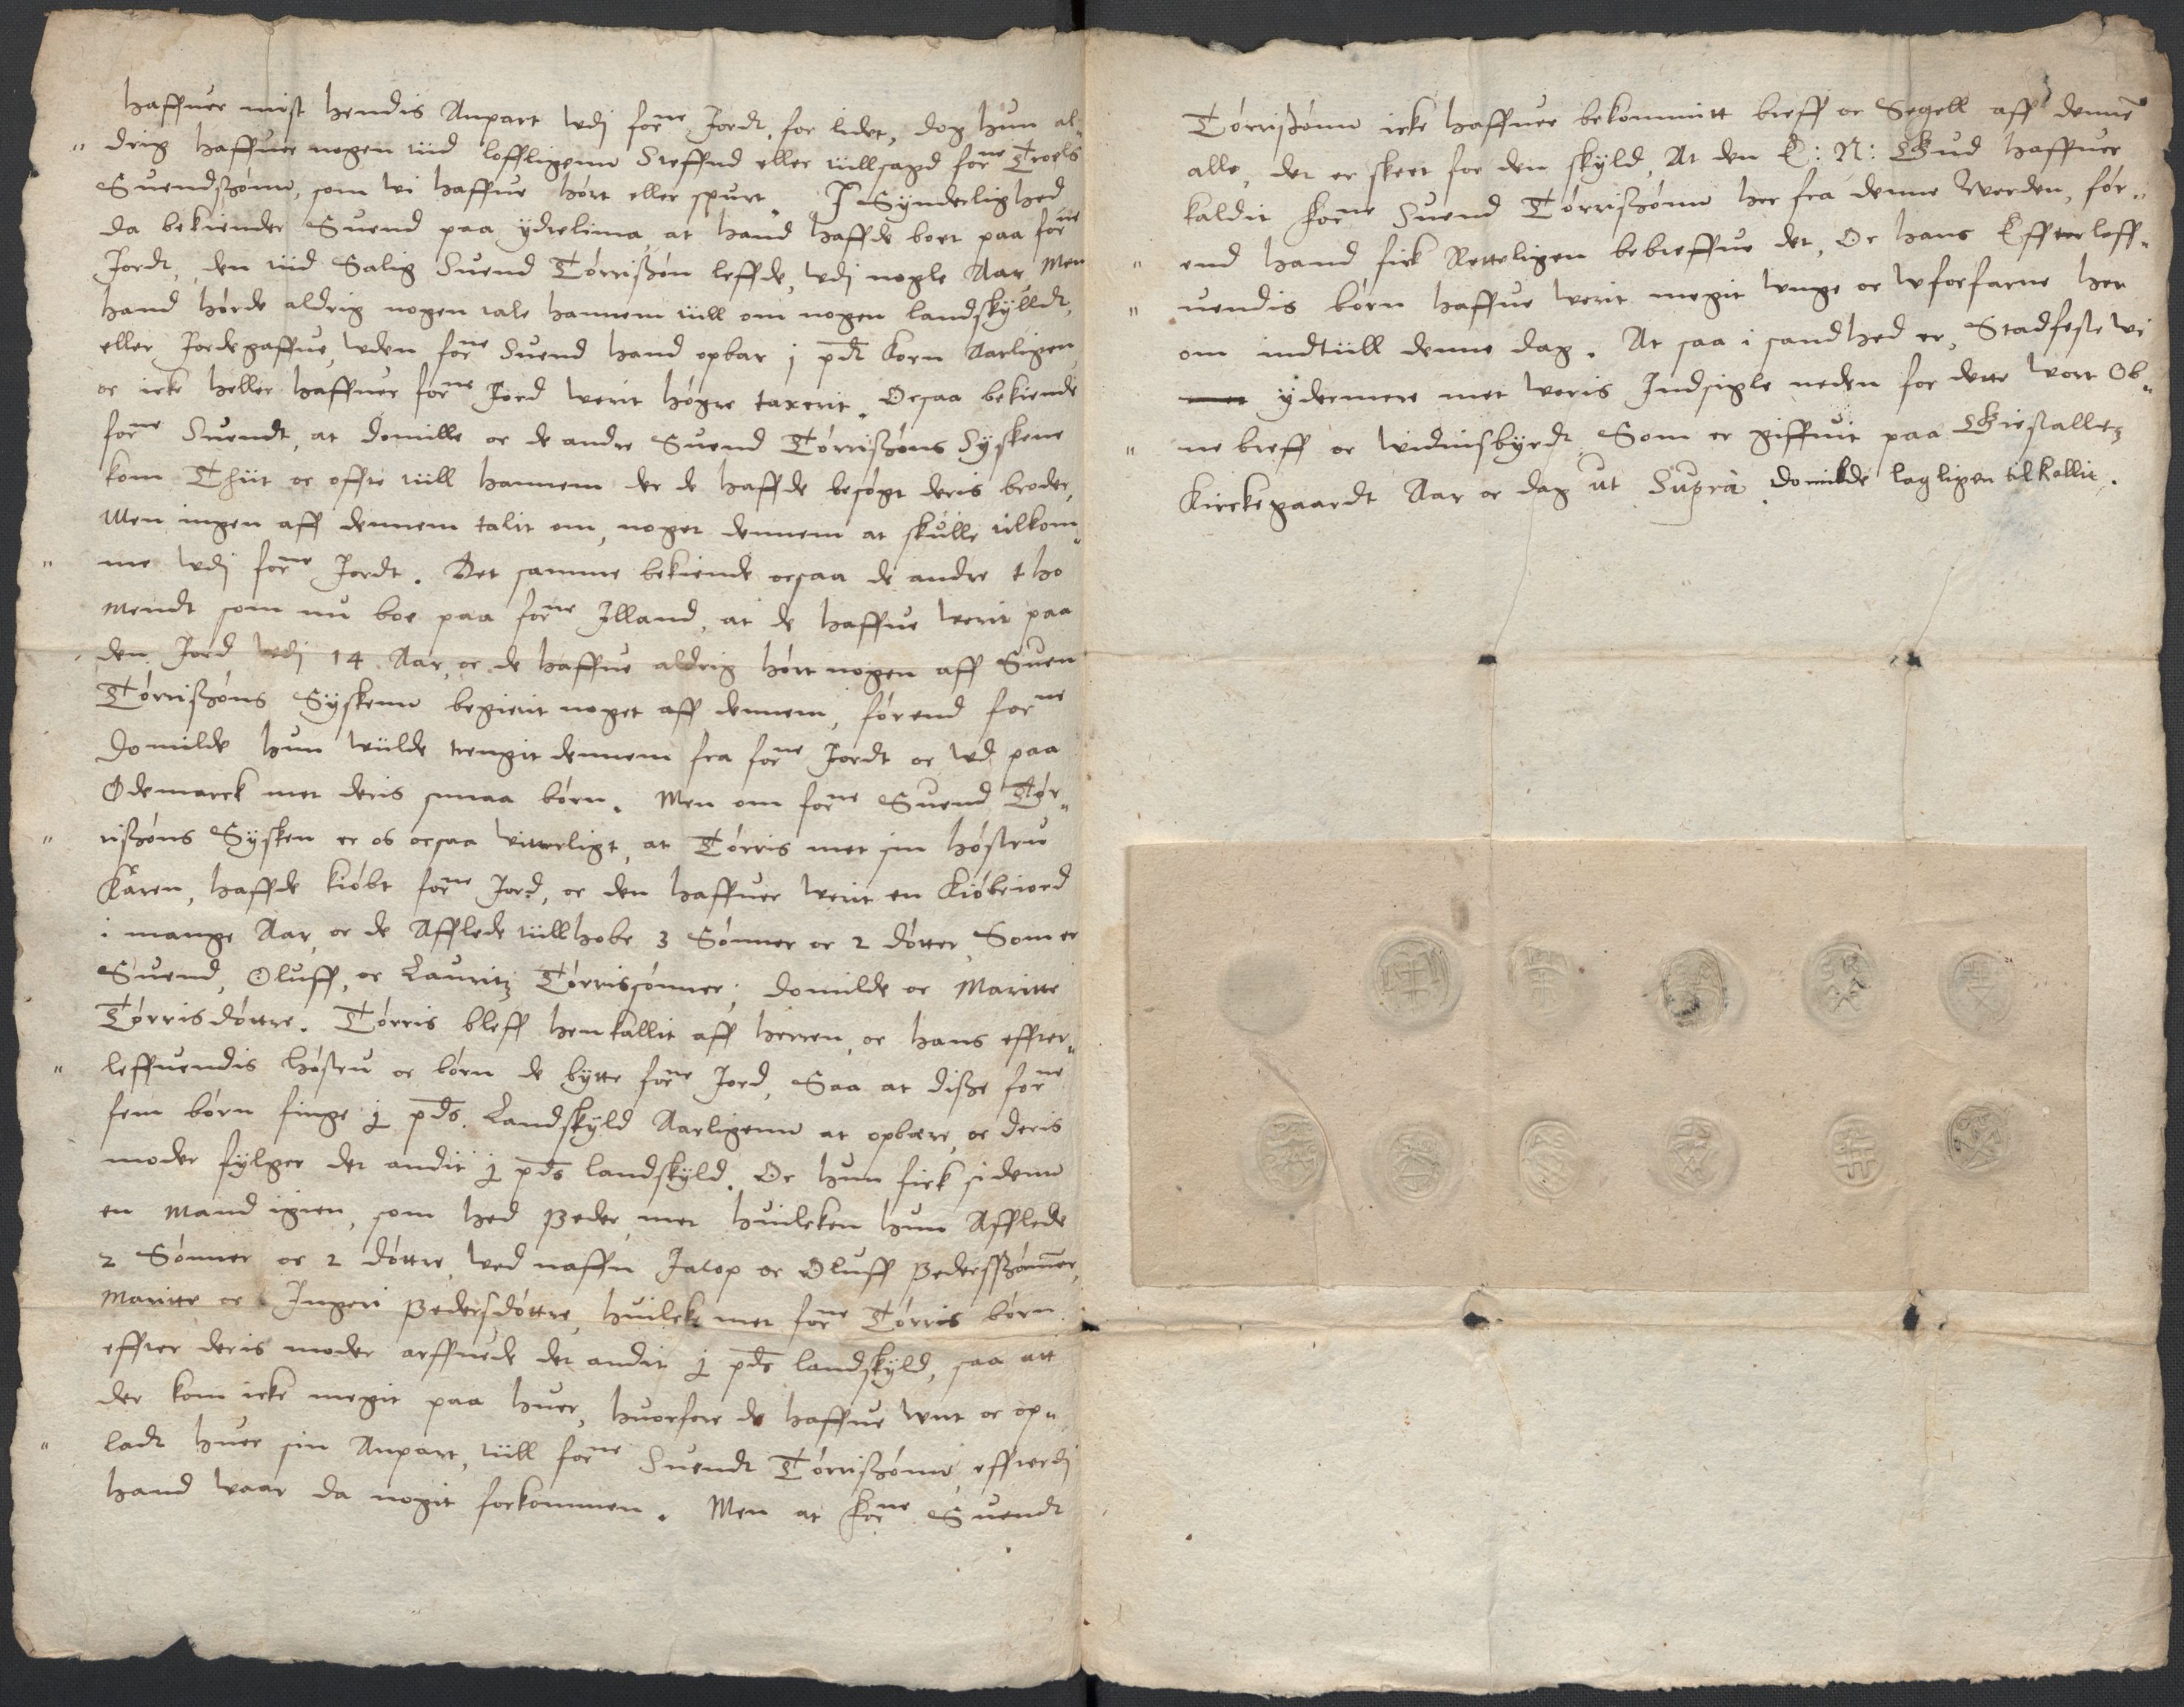 haffuer mist hendis Anpart udj forne Jordt, for lidet, dog hun al„
„ drig haffuer nogen tiid loffligenn Steffnd eller tiillsagd forne Troels
Suendßønn, som wi haffue hørt eller spurt. I Synderlighed
da bekiender Suend paa ydrelima, at hand haffde boet paa forne
Jordt, den tiid Salig Suend Tørrißøn leffde, udj nogle Aar, Men
hand hørde aldrig nogen tale hannem tiill om nogen landskylldt,
eller Jordegaffue, uden forne Suend hand opbar j pdt Korn Aarligen
oc icke heller haffuer forne Jord werit høgre taxerit. Ocsaa bekiende
forne Suendt, at Domille oc de andre Suend Tørrißøns Syskene
kom Thiit oc offte tiill hannem der de haffde besøgt deris broder,
Men ingen aff dennem talit om, noget dennem at skulle tilkom„
„ me udj forne Jordt. Det samme bekiende ocsaa de andre tho
Mendt som nu boe paa forne Illand, at de haffue werit paa
den Jord udj 14 Aar, oc de haffue aldrig hørt nogen aff Suen
Tørrißøns Syskenn begierit noget aff dennem, førend forne
Domilde hun wiilde trengit dennem fra forne Jordt oc ud paa
Ødemarck met deris smaa børn. Men om forne Suend Tør„
„ rißøns Sysken er os ocsaa witterligt, at Tørris met sin høstru
Karen, haffde kiøbt forne Jord, oc den haffuer werit en Kiøbeiord
i mange Aar, oc de Afflede tiillhobe 3 Sønner oc 2 døtter, Som er
Suend, Oluff, oc Lauritz Tørrissønner; Domilde oc Maritte
Tørrisdøttre. Tørris bleff henkallit aff herren, oc hans effter„
„ leffuendis høstru oc børn de bytte forne Jord, Saa at diße forne
fem børn finge j pds. Landskyld Aarligenn at opbære, oc deris
moder fylger det andit j pds landskyld. Oc hun fick sidenn
en Mand igien, som hed Peder, met huilcken hun Afflede
2 Sønner oc 2 døttre, wed naffn Jacop oc Oluff Pedersßønner,
Maritte oc Ingeri Pedersdøttre, huilcke met forne Tørris børn
effter deris moder arffuede det andit j pds landskyld, saa att
der kom icke megit paa huer, huorfore de haffue unt oc op„
„ ladt huer sin Anpart, tiill forne Suendt Tørrißønn, effterdj
hand waar da nogit forkommen. Men at forne Suendt
Tørrißønn icke haffuer bekommitt breff oc Segell aff denne
alle, det er skeet for den skyld, At den E: N: Gud haffuer
kaldit forne Suend Tørrißønn her fra denne Werden, før„
„ end hand fick Retteligen bebreffue det, Oc hans Effterleff„
„ uendis børn haffue werit megit unge oc uforfarne her
om indtiill denne dag. At saa i sandhed er, Stadfeste wi
ydermere met woris Indsigle neden for dette wort Ob„
„ ne breff oc widnisbyrdt, Som er giffuit paa Giestallen
Kirckegaardt Aar oc dag ut Supra Domilde lagligen tilkallit.